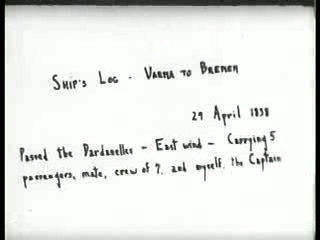 Ship's Log - Varna to Bremen
29 April 1838
Passed the Dardanelles - East wind - Carrying 5
passengers, mate, crew of 7, and myself, the Captain